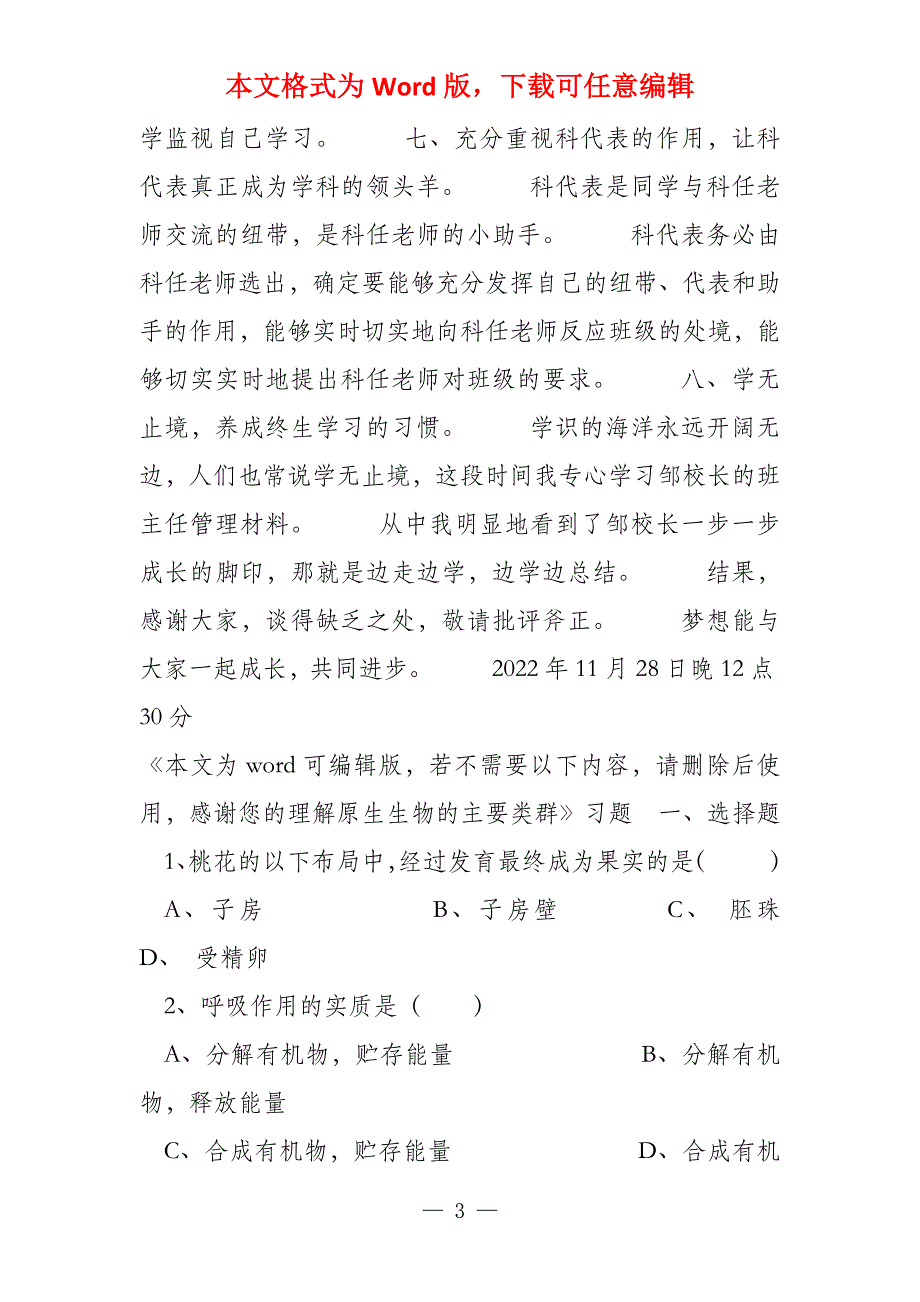 本文格式为 Word 版，下载可任意编辑
学监视自己学习。 七、充分重视科代表的作用，让科
代表真正成为学科的领头羊。 科代表是同学与科任老
师交流的纽带，是科任老师的小助手。 科代表务必由
科任老师选出，确定要能够充分发挥自己的纽带、代表和助
手的作用，能够实时切实地向科任老师反应班级的处境，能
够切实实时地提出科任老师对班级的要求。 八、学无
止境，养成终生学习的习惯。 学识的海洋永远开阔无
边，人们也常说学无止境，这段时间我专心学习邹校长的班
主任管理材料。 从中我明显地看到了邹校长一步一步
成长的脚印，那就是边走边学，边学边总结。 结果，
感谢大家，谈得缺乏之处，敬请批评斧正。 梦想能与
大家一起成长，共同进步。 2022 年 11 月 28 日晚 12 点
30 分
《本文为 word 可编辑版，若不需要以下内容，请删除后使
用，感谢您的理解原生生物的主要类群》习题 一、选择题
1、桃花的以下布局中,经过发育最终成为果实的是( )
A、子房 B、子房壁 C、 胚珠
D、 受精卵
2、呼吸作用的实质是（ ）
A、分解有机物，贮存能量 B、分解有机
物，释放能量
C、合成有机物，贮存能量 D、合成有机
— 3 —